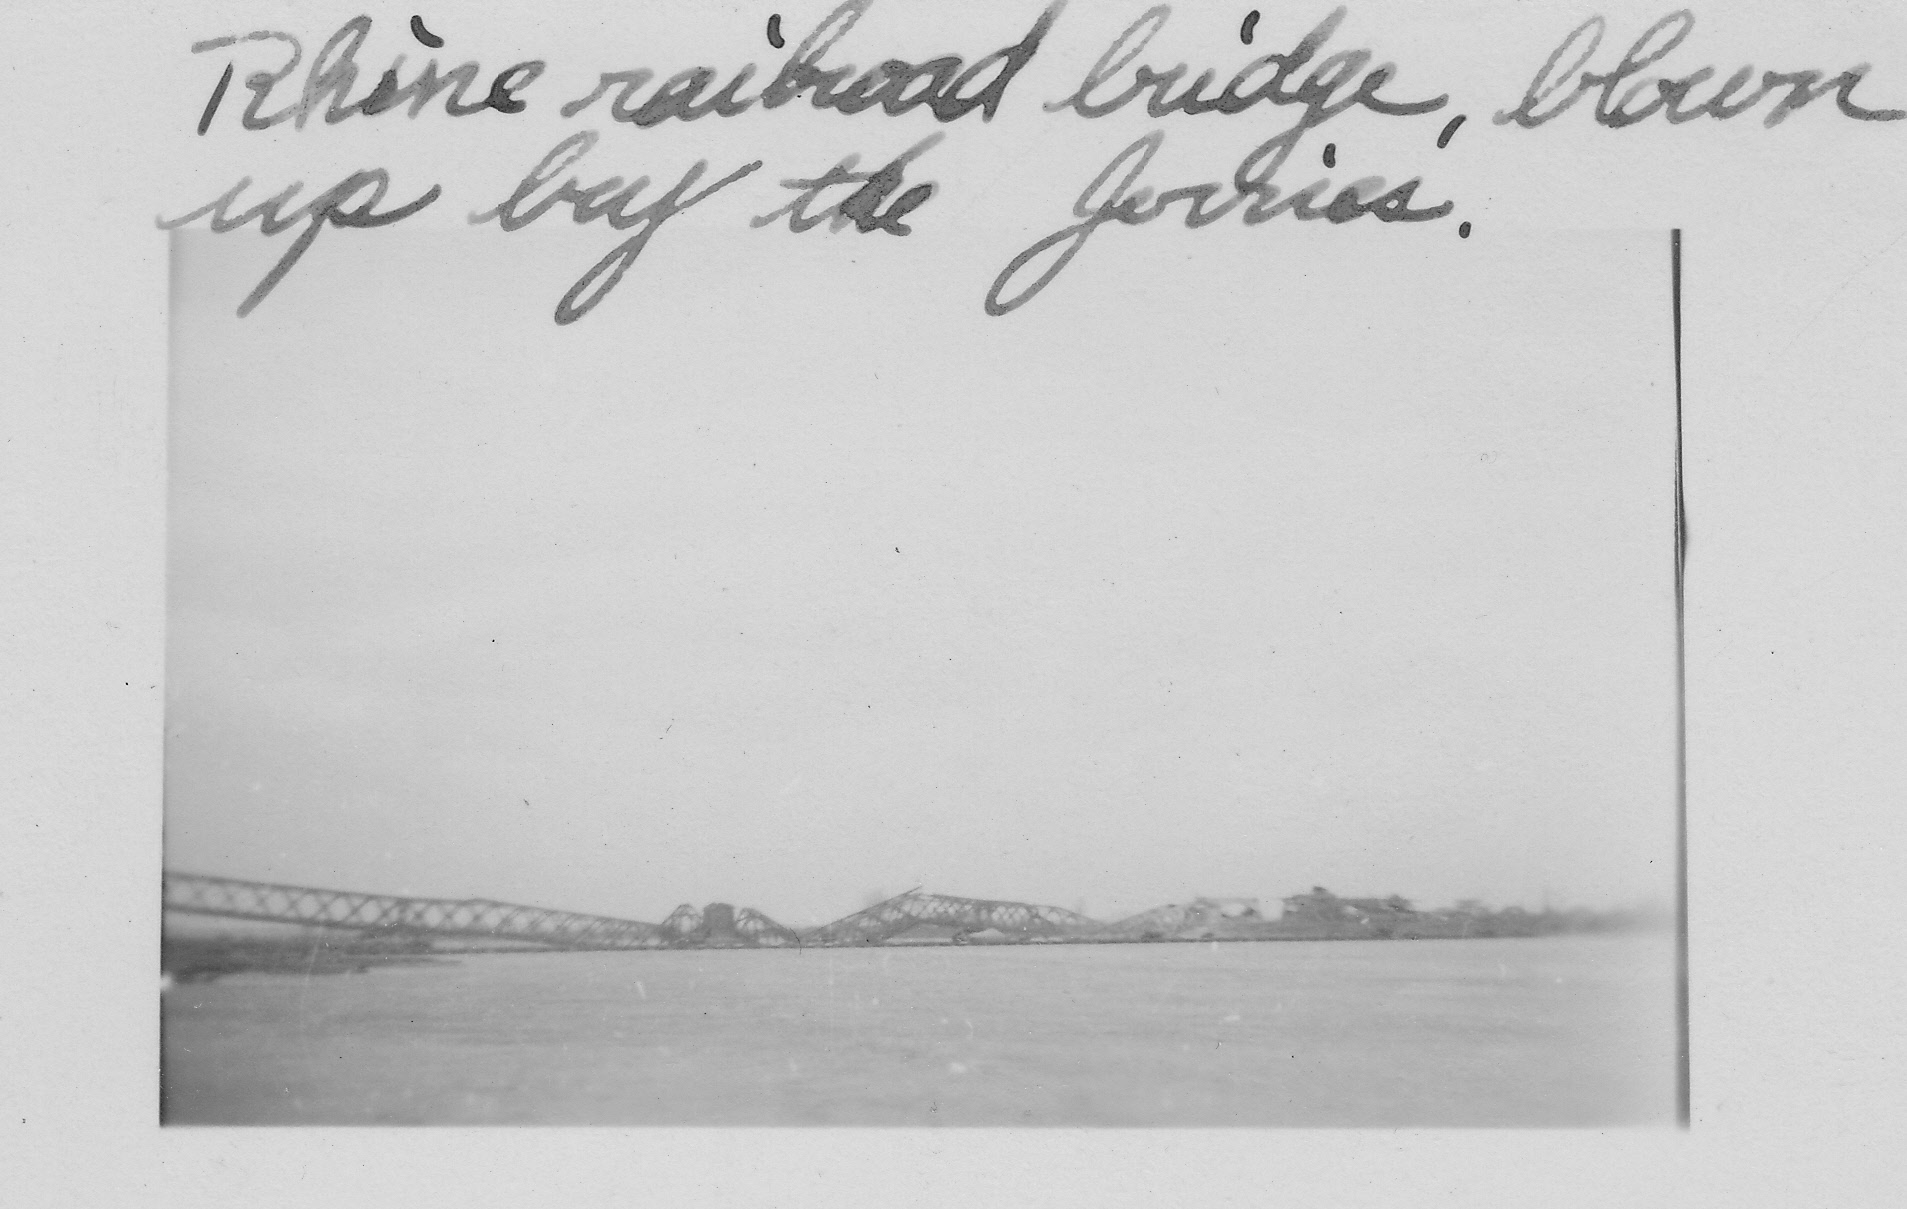 Rhine railroad bridge, blown
up by the Jerries.